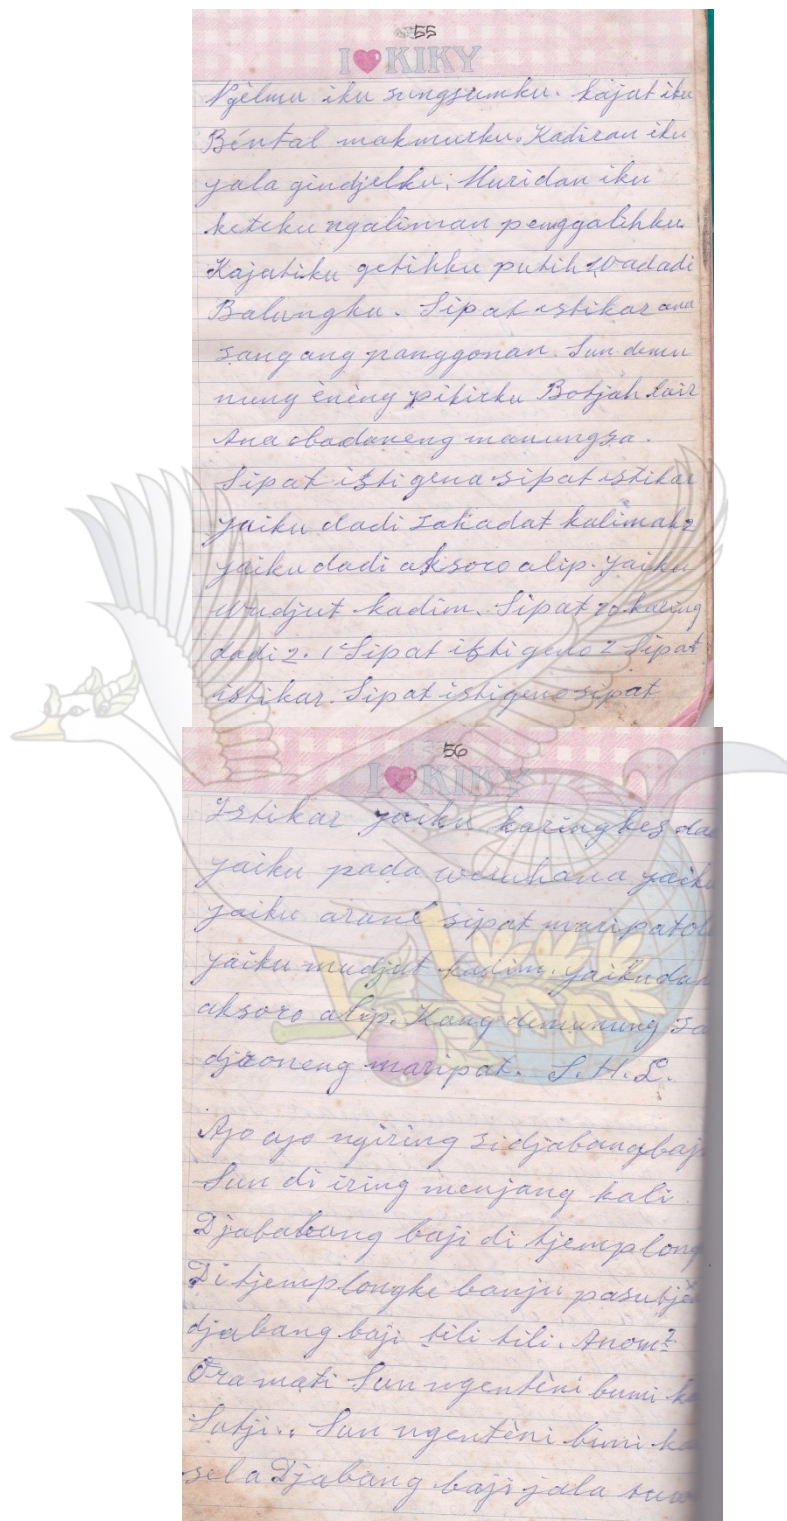 55
I KIKY
Ngèlmu iku sungsumku. Kajat iku
Béntal makmurku. Kadiran iku
jala gindjelku, Muridan iku
keteku ngaliman penggalihku
Kajatiku getihku putih Wadadi
Balungku. Sipat istikar ana
sangang panggonan. Sun demu
nung èning pikirku Botjah lair
Ana obadaneng manungsa.
Sipat isti gena sipat istikar
jaiku dadi sahadat kalimah2
jaiku dadi aksoro alip. jaiku
wudjut kadim. Sipat 20 karing
dadi 2. 1 Sipat isti geno 2 Sipat
istikar. Sipat istigeno sipat
56
I KIKY
Istikar jaiku karingkes
jaiku pada weruhana
jaiku arané sipat
jaiku mudjut kadim. jaiku
aksoro alip. Kang demunung
djroneng maripat. S.H.L.
Ajo ajo ngiring si djabang
Sun di iring menjang kali
Djababang baji di
Di tjemplongke banju
djabang baji tili tili. Anom2
Ora mati Sun ngentèni bumi
Sutji.. Sun ngentèni bumi
sela Djabang baji jala